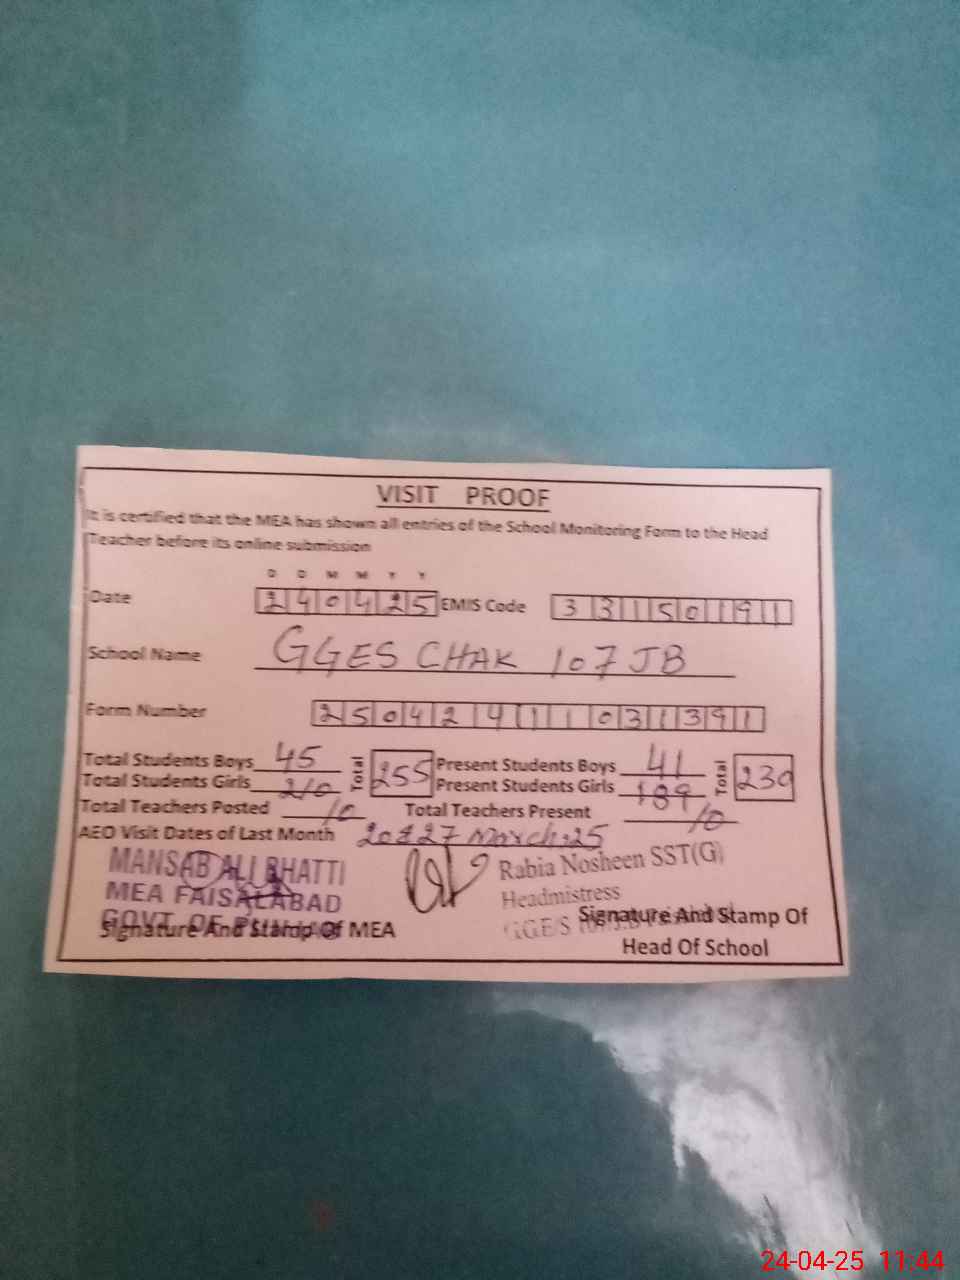 VISIT PROOF
It is certified that the MEA has shown all entries of the School Monitoring Form to the Head
Teacher before its online submission
D D M M Y Y
Date 240425 EMIS Code 33150191
School Name GGES CHAK 107 JB
Form Number 25042411031391
Total Students Boys 45 Total 255 Present Students Boys 41 Total 230
Total Students Girls 210 Present Students Girls 189
Total Teachers Posted 10 Total Teachers Present 10
AEO Visit Dates of Last Month 20 & 27 March-25
MANSAB ALI BHATTI
MEA FAISALABAD
GOVT. OF
Signature And Stamp Of MEA
Rabia Nosheen SST(G)
Headmistress
GGE/S
Signature And Stamp Of
Head Of School
24-04-25 11:44